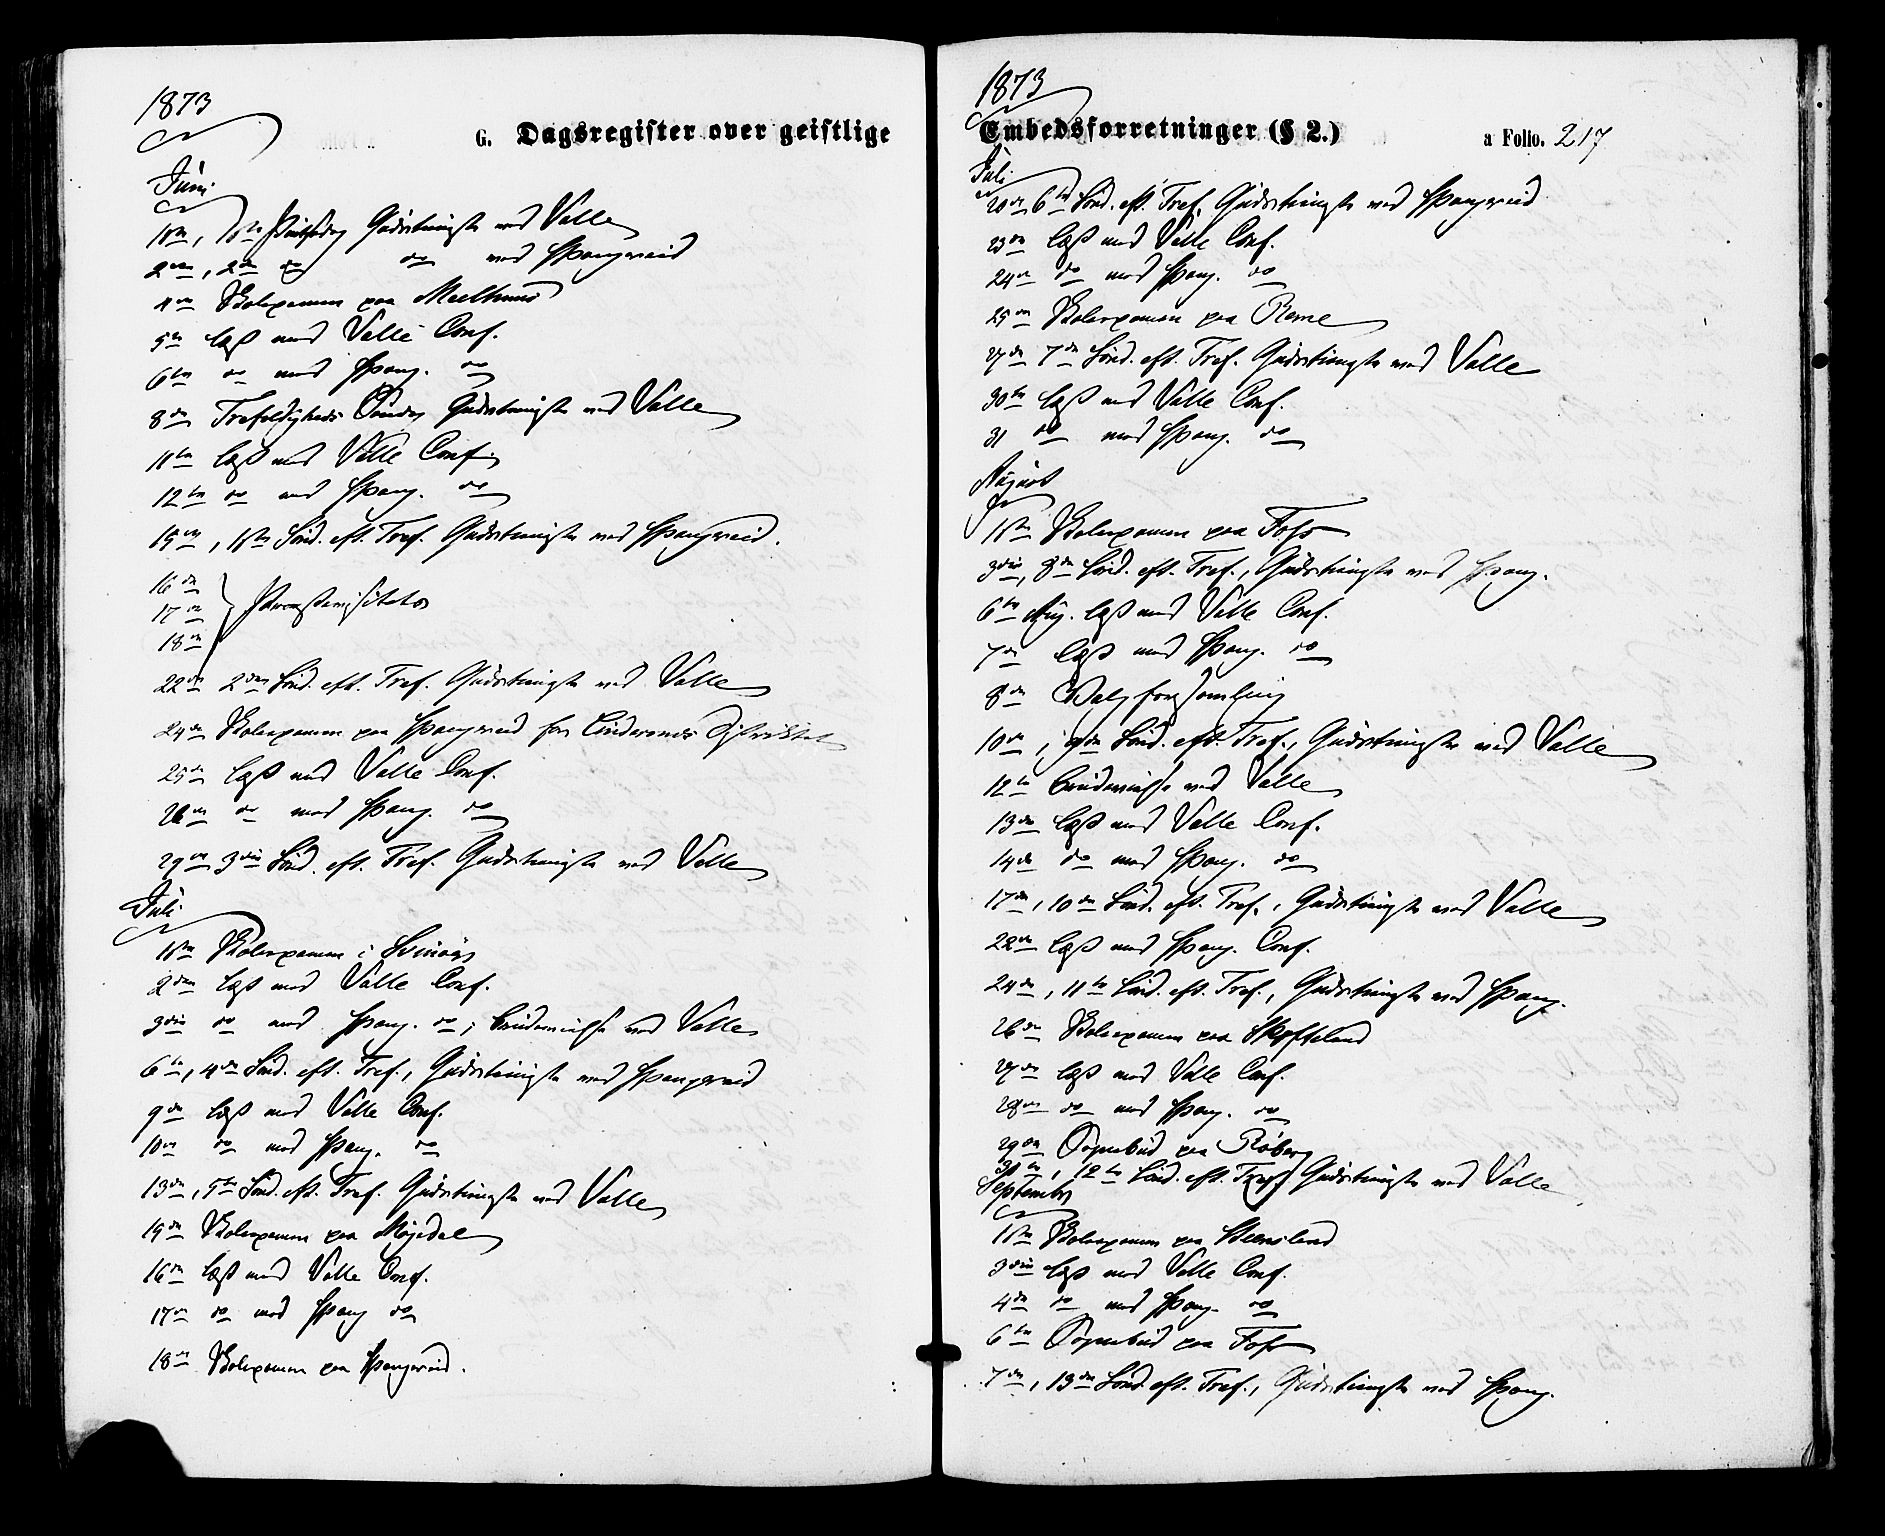 1873
G. Dagsregister over geistlige
Juni
1ste, 1ste Pintsedag Gudstieneste ved Valle
2den, 2den do do ved Spangereid
4de Skolexamen paa Meelhuus
5te læst med Valle Conf.
6te do med Spang. do
8de Trefoldigheds Søndag Gudstieneste ved Valle
11te læst med Valle Conf.
12te do med Spang. do
15de, 1ste Sønd. eft. Tref. Gudstieneste ved Spangereid.
16de
17de } Provstevisitats
18de
22de 2den Sønd. eft. Tref. Gudstieneste ved Valle
24de Skolexamen paa Spangereid for Lindesnes Distriktet
25de læst med Valle Conf.
26de do med Spang. do
29de 3die Sønd. eft. Tref. Gudstieneste ved Valle
Juli
1ste Skolexamen i Svinøer
2den læst med Valle Conf.
3die do med Spang. do; Brudevielse ved Valle
6te, 4de Sønd. eft. Tref., Gudstieneste ved Spangereid
9de læst med Valle Conf.
10de do med Spang. do
13de, 5te Sønd. eft. Tref. Gudstieneste ved Valle
15de Skolexamen paa Møgedal
16de læst med Valle Conf.
17de do med Spang do
18de Skolexamen paa Spangereid.
1873
Embedsforretninger (§ 2.)
a Folio. 217
Juli
20de 6te Sønd. eft. Tref. Gudstieneste ved Spangereid
23de læst med Valle Conf.
24de do med Spang. do
25de Skolexamen paa Rerne
27de 7de Sønd. eft. Tref. Gudstieneste ved Valle
30te læst med Valle Conf.
31 do med Spang. do
August
1ste Skolexamen paa Foss
3die, 8de Sønd. eft. Tref., Gudstieneste ved Spang.
6te Aug. læst med Valle Conf.
7de læst med Spang. do
8de Valgforsamling
10de, 9de Sønd. eft. Tref., Gudstieneste ved Valle
12te Brudevielse ved Valle
13de læst med Valle Conf.
14de do med Spang. do
17de, 10de Sønd. eft. Tref., Gudstieneste ved Valle
22de læst med Spang. Conf.
24de, 11te Sønd. eft. Tref., Gudstieneste ved Spang.
26de Skolexamen paa Skofteland
27de læst med Valle Conf.
28de do med Spang. do
29de Sognebud paa Røberg
31te, 12te Sønd. eft. Tref. Gudstieneste ved Valle
September
1ste Skolexamen paa Steensland
3die læst med Valle Conf.
4de do med Spang. do
6te Sognebud paa Foss
7de, 13de Sønd. eft. Tref., Gudstieneste ved Spang.